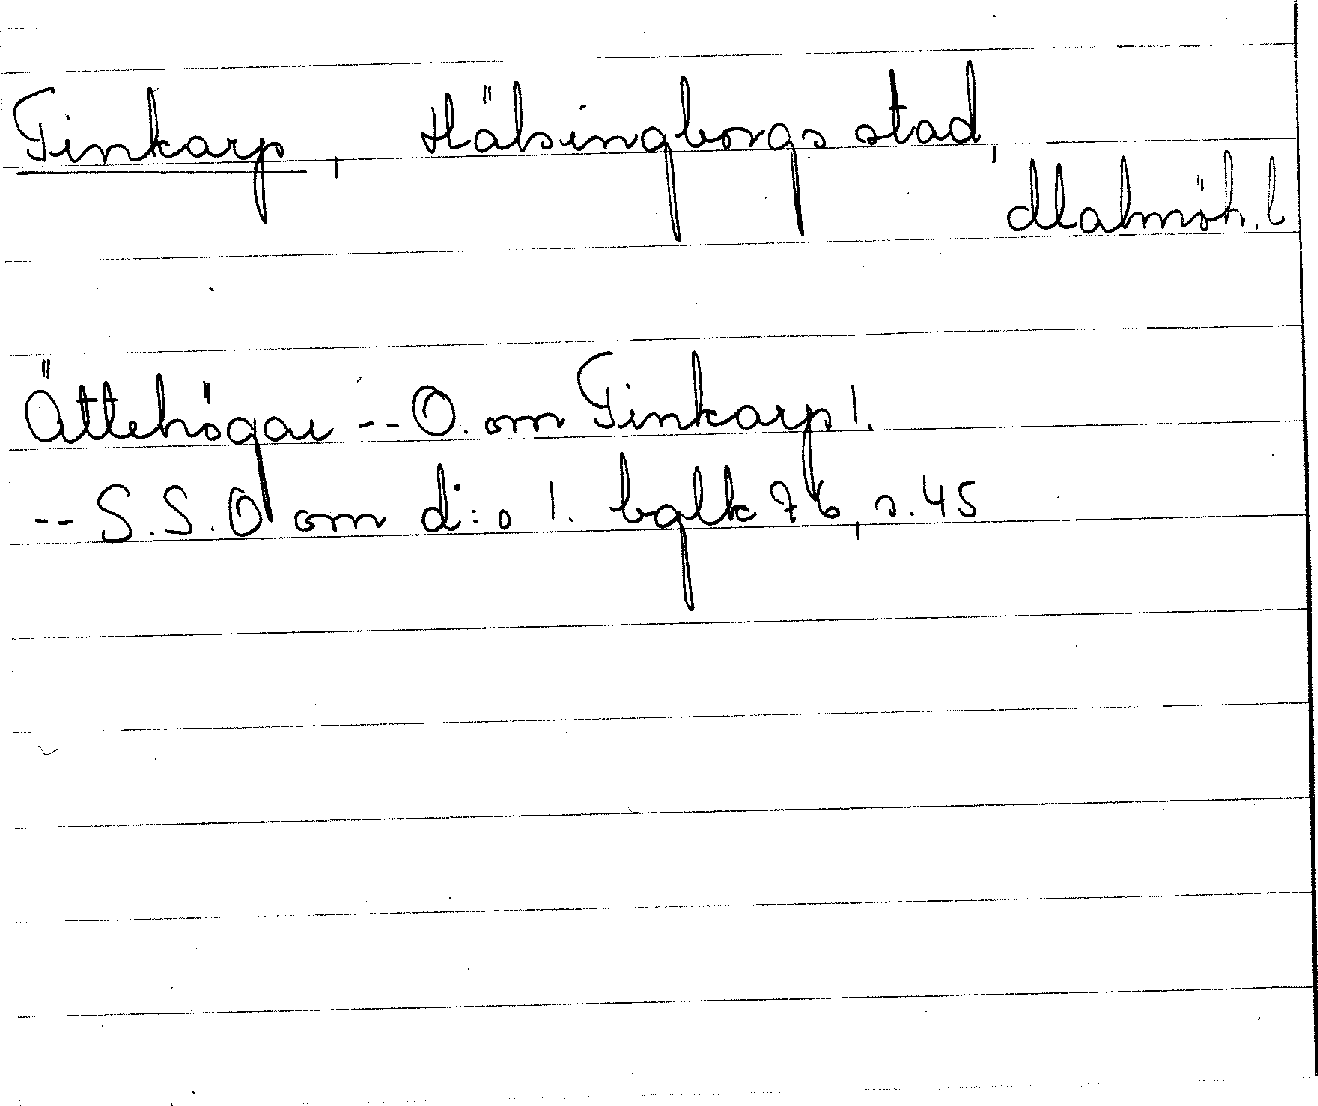 Tinkarp, Hälsingborgs stad,
Malmöh. l
Ättehögar -- O. om Tinkarp!.
-- S.S.O om d:o !. bglk 76, s. 45